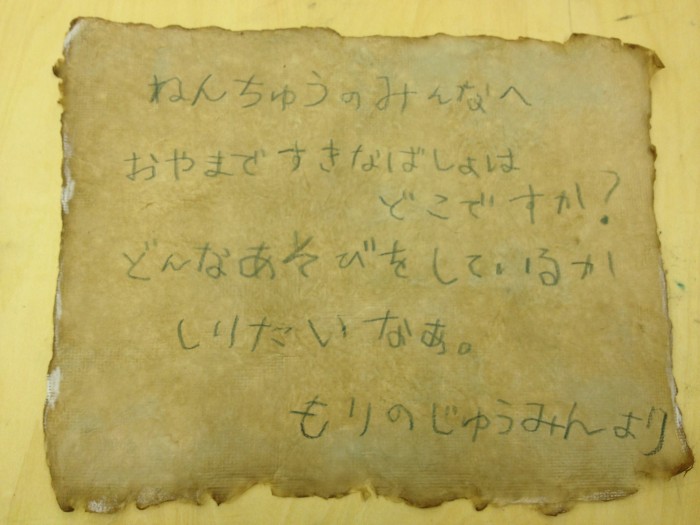 ねんちゅうのみんなへ
おやまですきなばしょは
どこですか?
どんなあそびをしているか
しりたいなぁ。
もりのじゅうみんより